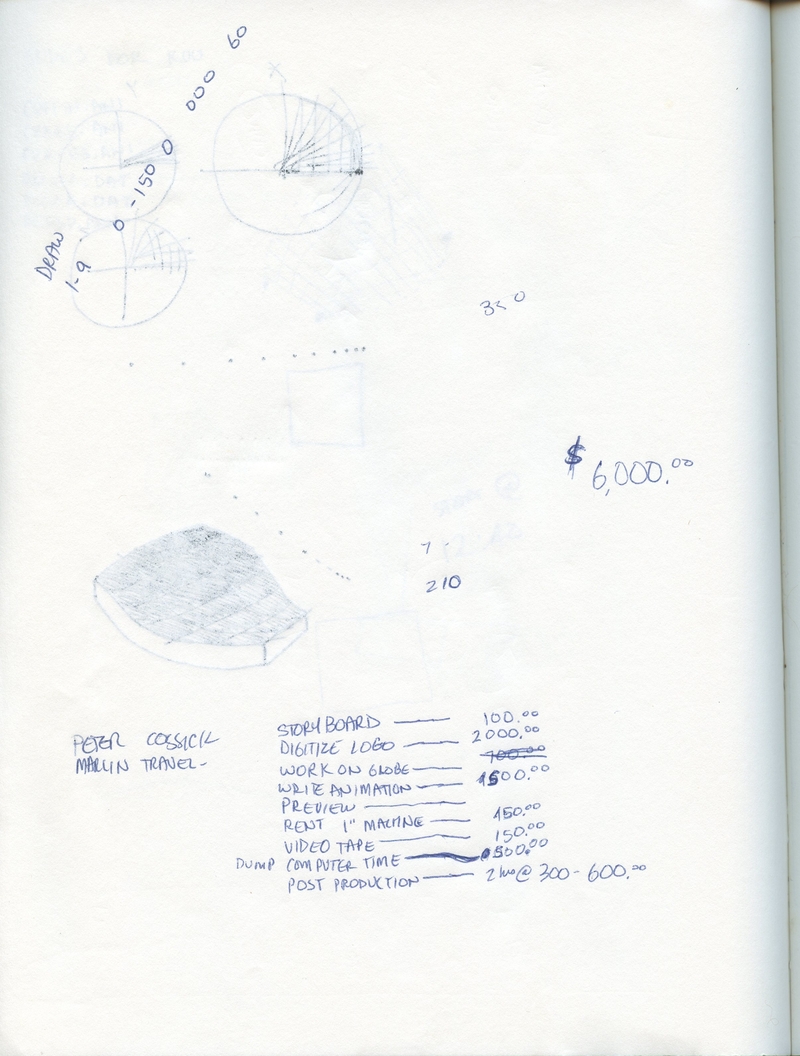 60
000
X
Y
0
-150
0
DRAW
1-9
$ 6,000.00
7 -
210
PETER COSSICK
MARLIN TRAVEL-
STORYBOARD —— 100.00
DIGITIZE LOGO —— 2000.00
WORK ON GLOBE —— 700.00
WRITE ANIMATION —— 1500.00
PREVIEW ——
RENT 1" MACHINE —— 450.00
VIDEO TAPE —— 150.00
DUMP COMPUTER TIME —— 500.00
POST PRODUCTION —— 2 @ 300 - 600.00